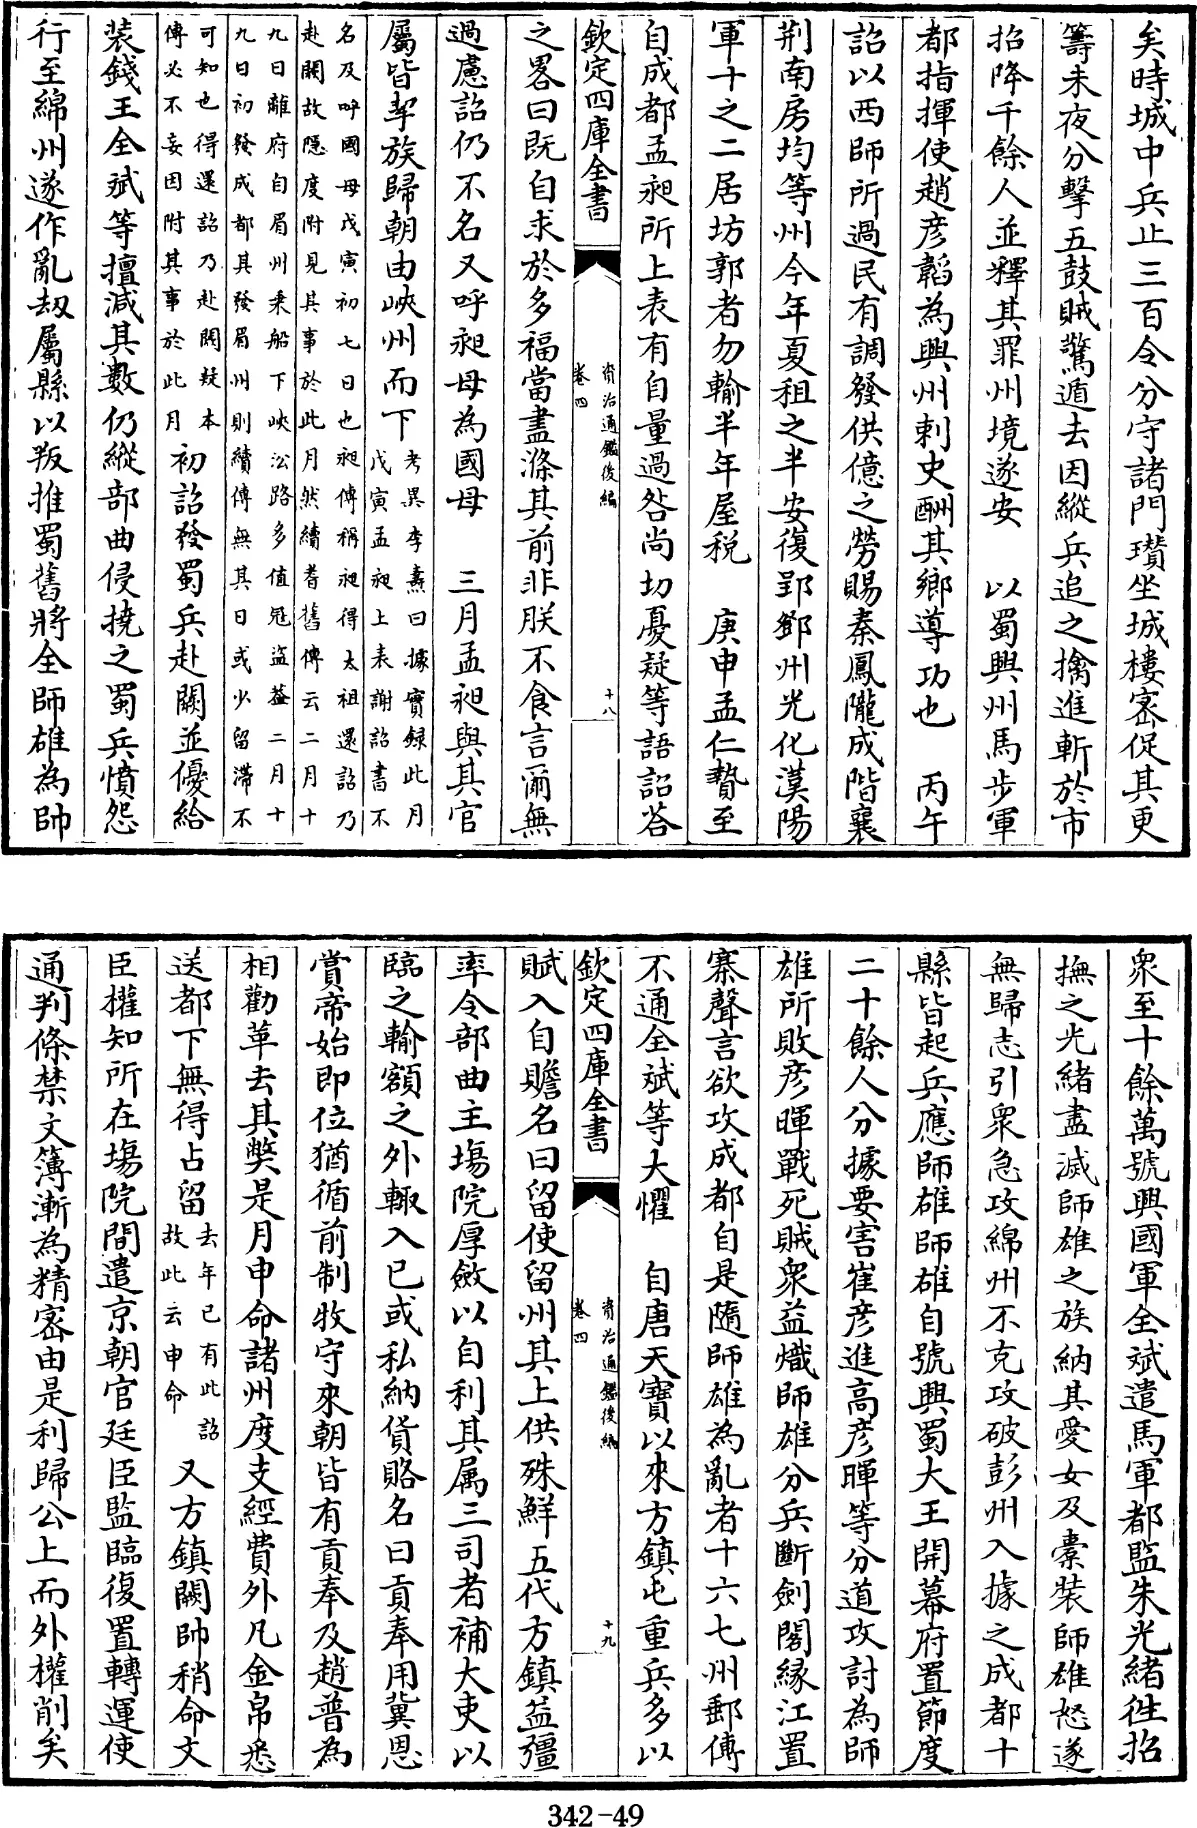 矣時城中兵止三百令分守諸門瓚坐城樓密促其更
籌未夜分擊五鼓賊驚遁去因縱兵追之擒進斬於市
招降千餘人並釋其罪州境遂安　以蜀興州馬步軍
都指揮使趙彦韜為興州刺史酬其鄉導功也　丙午
詔以西師所過民有調發供億之勞賜秦鳳隴成階襄
荆南房均等州今年夏租之半安復郢鄧州光化漢陽
軍十之二居坊郭者勿輸半年屋税　庚申孟仁贄至
自成都孟昶所上表有自量過咎尚切憂疑等語詔荅
欽定四庫全書
資治通鑑後編
卷四
十八
之畧曰既自求於多福當盡滌其前非朕不食言爾無
過慮詔仍不名又呼昶母為國母　三月孟昶與其官
屬皆挈族歸朝由峽州而下
考異李燾曰據實録此月
戊寅孟昶上表謝詔書不
名及呼國母戊寅初七日也昶傳稱昶得太祖還詔乃
赴闕故隱度附見其事於此月然續耆舊傳云二月十
九日離府自眉州乘船下峽㳂路多值冦盗葢二月十
九日初發成都其發眉州則續傳無其日或少留滯不
可知也得還詔乃赴闕疑本
傳必不妄因附其事於此月
初詔發蜀兵赴闕並優給
装錢王全斌等擅減其數仍縱部曲侵撓之蜀兵憤怨
行至綿州遂作亂刼屬縣以叛推蜀舊將全師雄為帥
衆至十餘萬號興國軍全斌遣馬軍都監朱光緒徃招
撫之光緒盡滅師雄之族納其愛女及橐装師雄怒遂
無歸志引衆急攻綿州不克攻破彭州入據之成都十
縣皆起兵應師雄師雄自號興蜀大王開幕府置節度
二十餘人分據要害崔彦進高彦暉等分道攻討為師
雄所敗彦暉戰死賊衆益熾師雄分兵斷劍閣緣江置
寨聲言欲攻成都自是隨師雄為亂者十六七州郵傳
不通全斌等大懼　自唐天寶以來方鎮屯重兵多以
欽定四庫全書
資治通鑑後編
卷四
十九
賦入自贍名曰留使留州其上供殊鮮五代方鎮益彊
率令部曲主塲院厚斂以自利其属三司者補大吏以
臨之輸額之外輙入已或私納貨賂名曰貢奉用冀恩
賞帝始即位猶循前制牧守來朝皆有貢奉及趙普為
相勸革去其獘是月申命諸州度支經費外凡金帛悉
送都下無得占留
去年已有此詔
故此云申命
又方鎮闕帥稍命文
臣權知所在塲院間遣京朝官廷臣監臨復置轉運使
通判條禁文簿漸為精密由是利歸公上而外權削矣
342-49